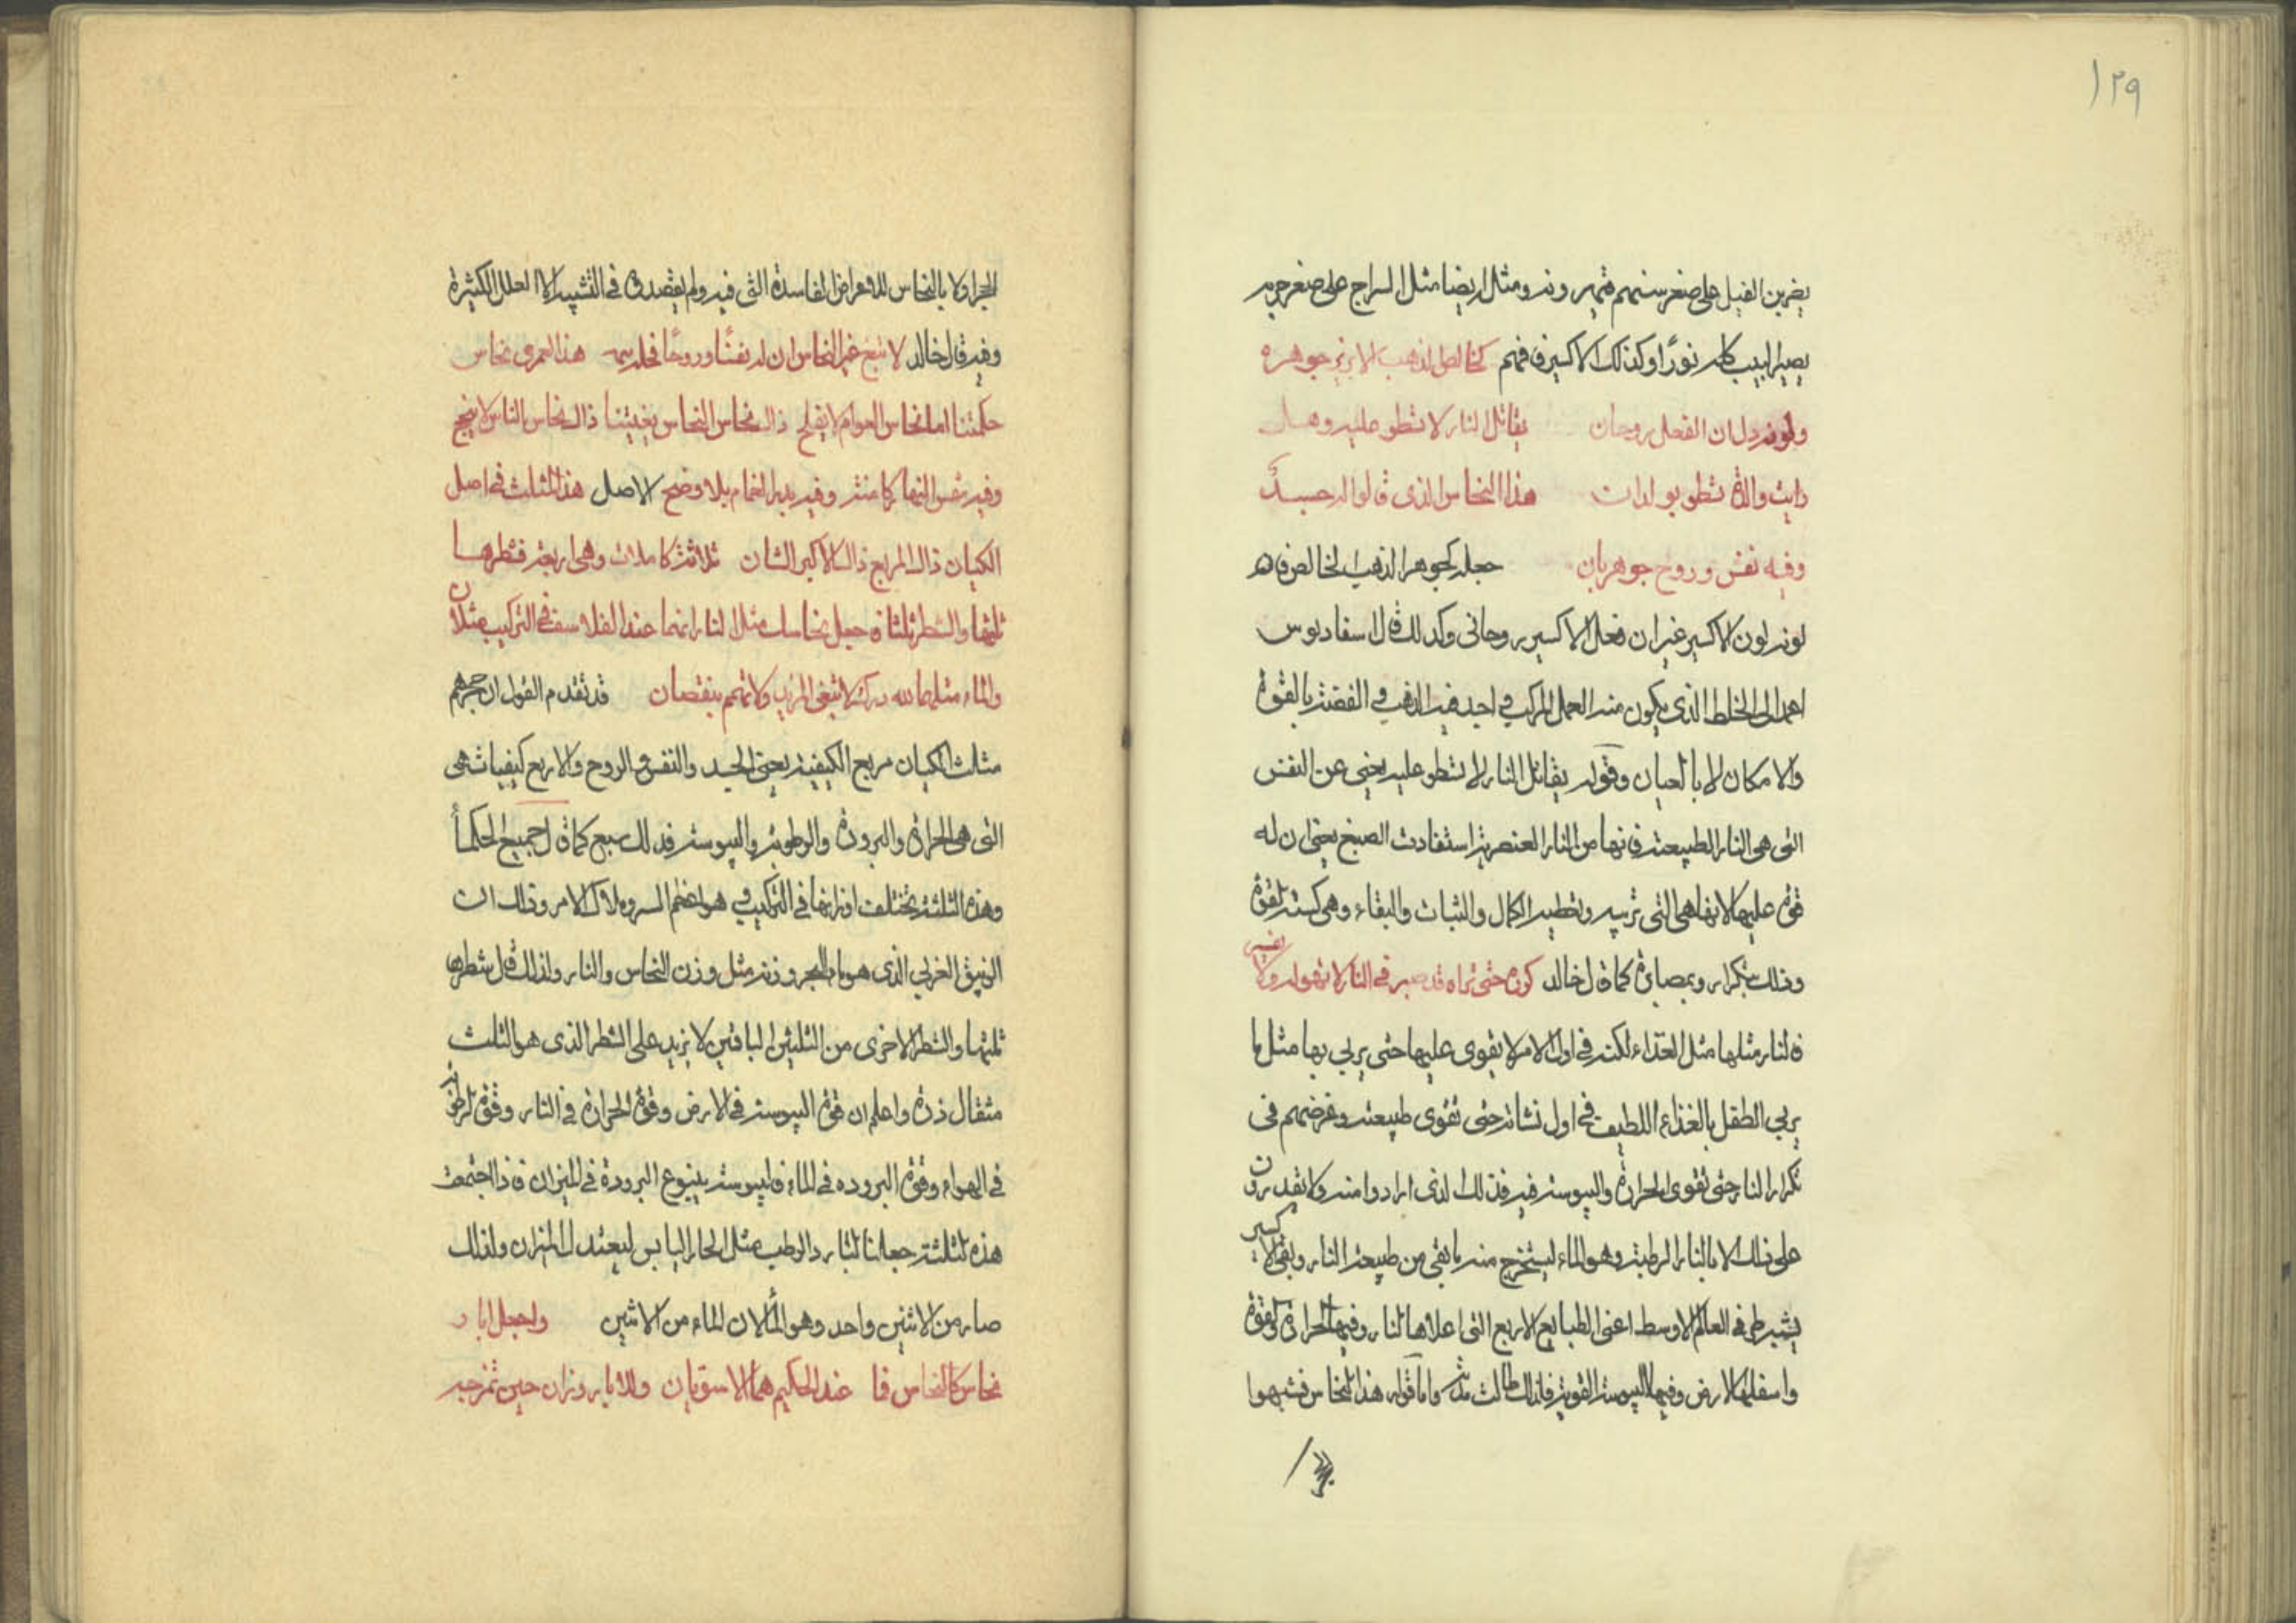 ١٢٩
على صغر ومثله ايضا مثل السراج على صغر جرمه
يصير البيت كله نورًا وكذلك الاكسير فافهم كخالص الذهب الابريز جوهره
ولونه دل ان الفعل روحان يقاتل النار لا تسطو عليه وهل
رايت والدة تسطو بولدان هذا النحاس الذى قالوا له جسد
وفيه نفس وروح جوهريان جعله كجوهر الذهب الخالص فاه
لونه لون الاكسير غير ان فعل الاكسير روحانى وكذلك قال اسفاديوس
الى الخلط الذى يكون منه العمل المركب فيه الذهب فى الفضة بالقوة
والامكان لا بالعيان وقوله يقاتل النار لا تسطو عليه يعنى عن النفس
التى هى النار الطبيعية فانها من النار العنصرية استفادت الصبغ يعنى ان له
قوة عليها لانها هى التى تربيه وتعطيه الكمال والثبات والبقاء وهى
وذلك بتكرار كما قال خالد كوره حتى تراه قد صبر فى النار لا
فالنار مثلها مثل الغذاء لكنه فى اول الامر لا يقوى عليها حتى يربى بها مثل ما
يربى الطفل بالغذاء اللطيف فى اول نشاته حتى تقوى طبيعته وغرضهم فى
تكرار النار حتى تقوى الحرارة واليبوسة فيه فذلك الذى ارادوا منه ولا يقدرون
على ذلك الا بالنار الرطبة وهو الماء ليستخرج منه ما بقى من طبيعة النار وبقى
فى العالم الاوسط اعنى الطبايع الاربع التى اعلاها النار وفيها الحرارة
واسفلها الارض وفيها اليبوسة القوية فلذلك واما قوله هذا النحاس فشبهوا
الفاسدة التى فيه ولم يقصدوا فى التشبيه الا العلل الكثيرة
وفيه قال خالد لا تبغ غير النحاس ان له نفسًا وروحًا هذا لعمرى نحاس
حكمتنا اما نحاس العوام لا يفلح ذاك نحاس النحاس بغيتنا ذاك نحاس الناس لا ينجح
وفيه شمس النهار كامنة وفيه بدر التمام بلا وضح الاصل هذا المثلث فى اصل
الكيان ذاك المربع ذاك الاكبر الشان ثلاثة كاملات وهى اربعة فشطرها
ثلثها والشطر ثلثان جعل نحاسك مثل النار انهما عند الفلاسف فى التركيب مثلان
والماء مثلهما لله درك لا تبغى المزيد ولا تهمم بنقصان قد تقدم القول ان حجرهم
مثلث الكيان مربع الكيفية يعنى الجسد والنفس والروح والاربع كيفيات هى
التى هى الحرارة والبرودة والرطوبة واليبوسة فذلك سبع كما قال جميع الحكمأ
وهذه الثلثة تختلف اوزانها فى التركيب هو اعظم السر وملاك الامر وذلك ان
الزيبق الغربى الذى هو ماء الحجر وزنه مثل وزن النحاس والنار ولذلك قال شطرها
ثلثها والشطر الاخرى من الثلثين الباقين لا يزيد على الشطر الذى هو الثلث
مثقال ذرة واعلم ان قوة اليبوسة فى الارض وقوة الحرارة فى النار وقوة الرطوبة
فى الهواء وقوة البروده فى الماء فاليبوسة ينبوع البرودة فى الميزان فاذا اجتمعت
هذه الثلثة جعلنا البارد الرطب مثل الحار اليابس ليعتدل الميزان ولذلك
صار من الاثنين واحد وهو الماء لان الماء من الاثنين واجعل ابار
نحاس كالنحاس فا عند الحكيم هما الاسوقيان والماء بروزان حين تمزجه